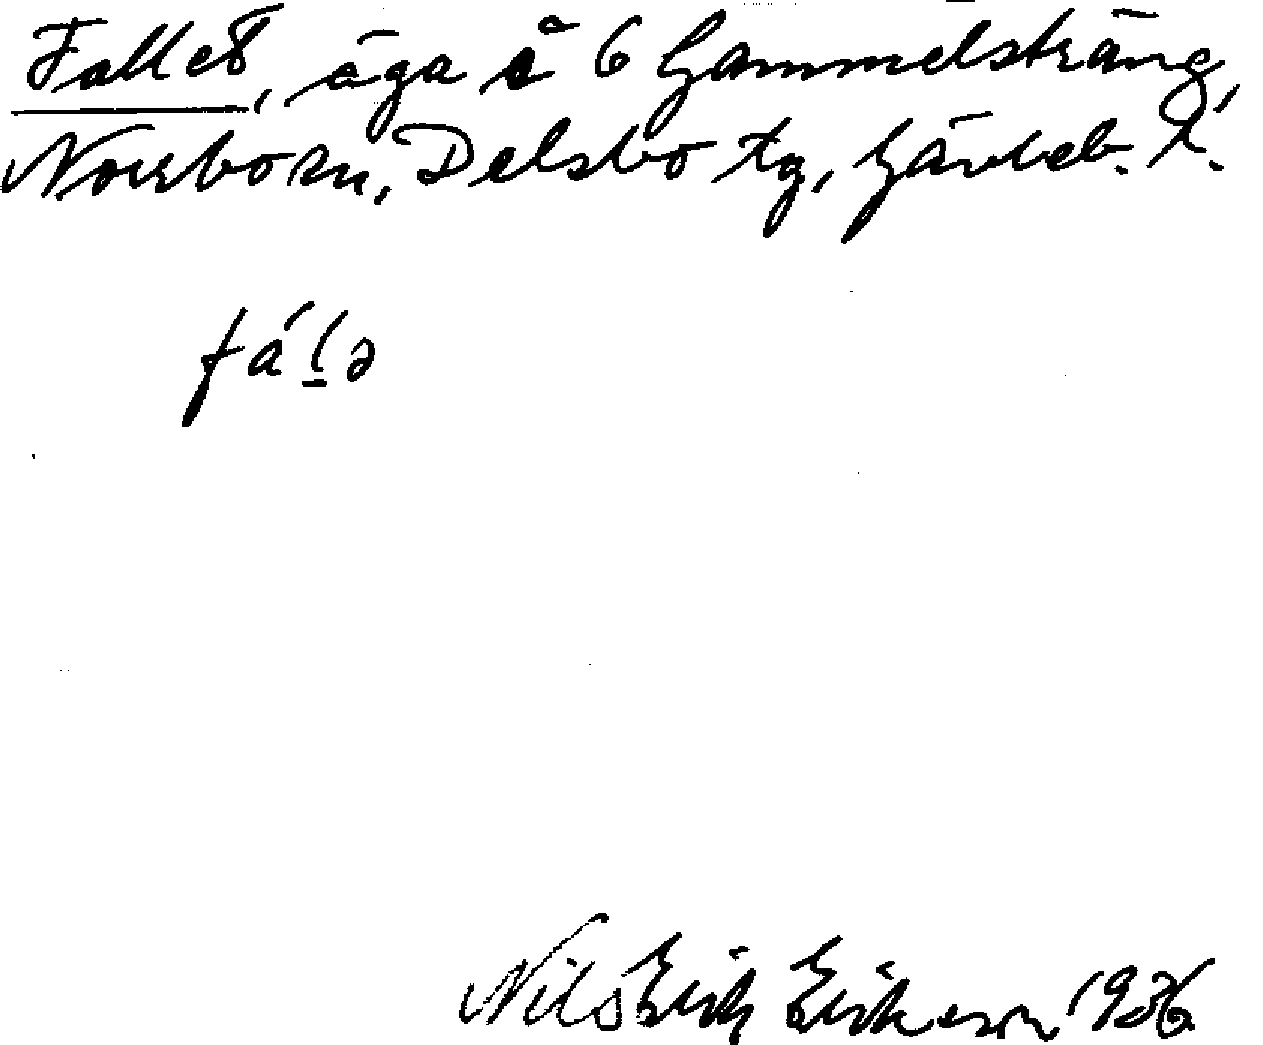 Fallet, äga å 6 Gammelsträng,
Norrbo sn, Delsbo tg, Gävleb. l.
fá̀lə
Nils Erik Eriksson 1936